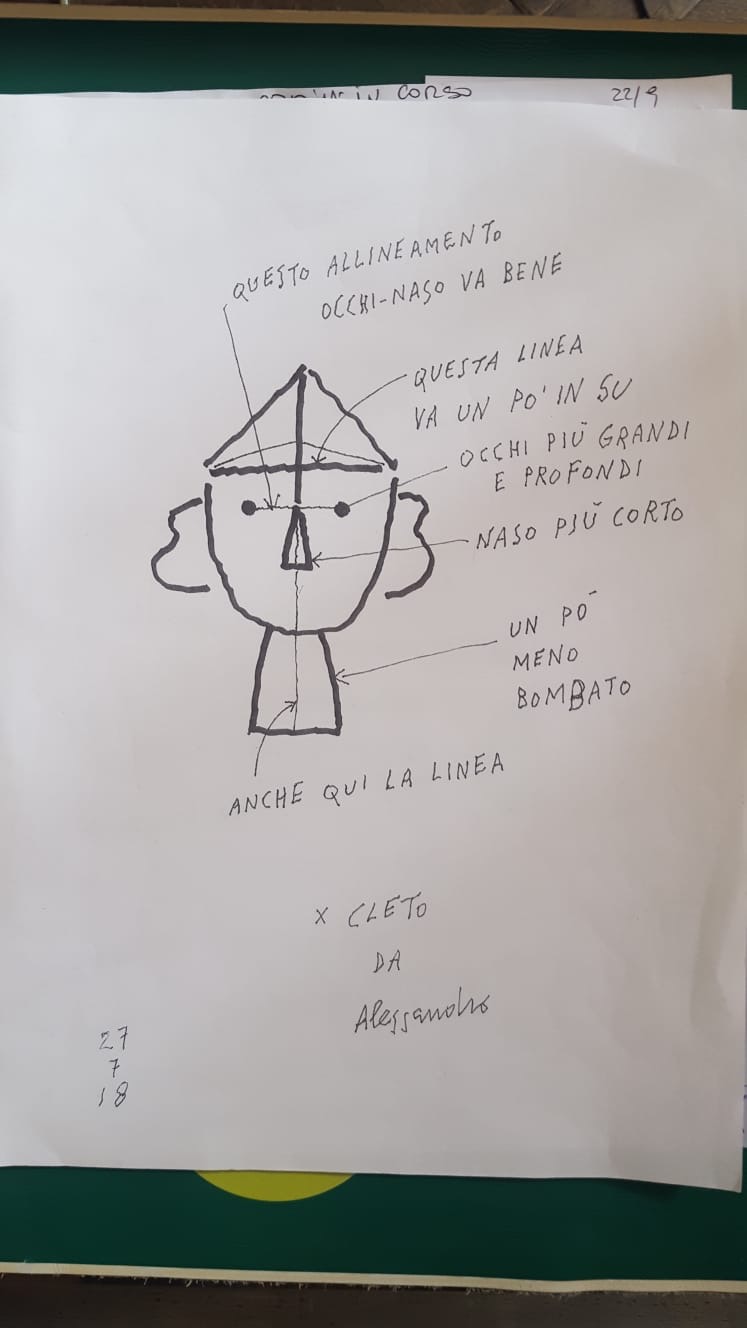 IN CORSO
22/9
QUESTO ALLINEAMENTO
OCCHI-NASO VA BENE
QUESTA LINEA
VA UN PO' IN SU
OCCHI PIÙ GRANDI
E PROFONDI
NASO PIÙ CORTO
UN PO'
MENO
BOMBATO
ANCHE QUI LA LINEA
X CLETO
DA
Alessandro
27
7
18